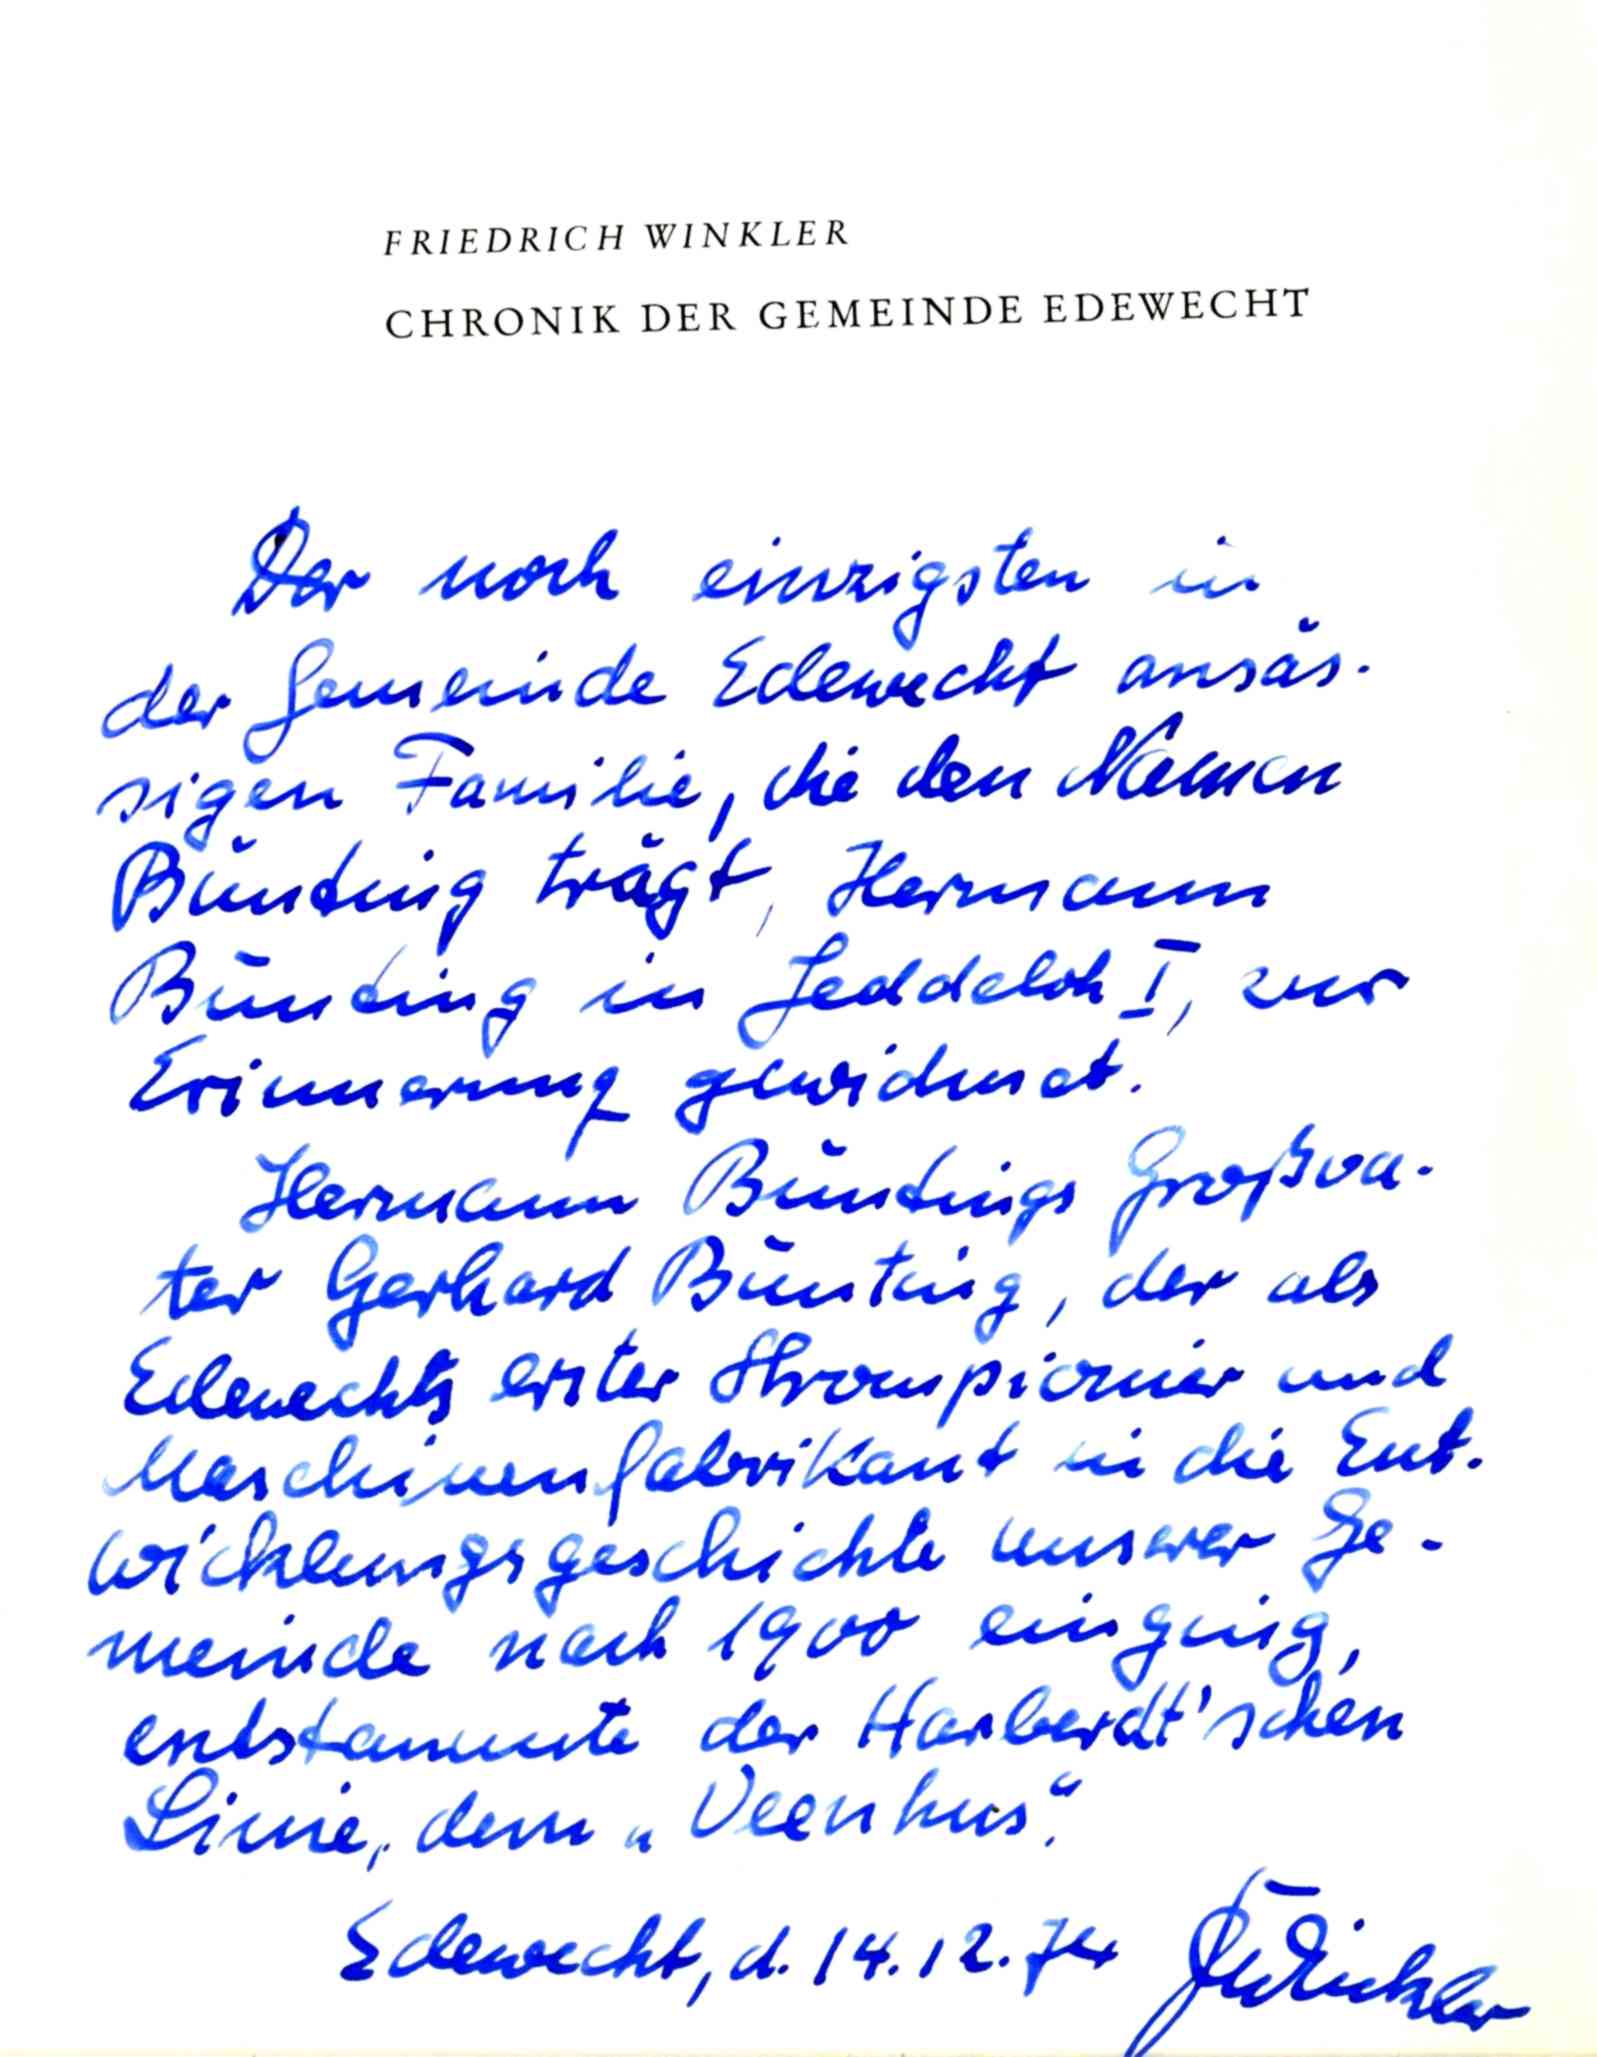 FRIEDRICH WINKLER
CHRONIK DER GEMEINDE EDEWECHT
Der noch einzigsten in
der Gemeinde Edewecht ansäs-
sigen Familie, die den Namen
Bünting trägt, Hermann
Bünting in Jeddeloh I, zur
Erinnerung gewidmet.
Hermann Büntings Großva-
ter Gerhard Bünting, der als
Edewechts erster Strompionier und
Maschinenfabrikant in die Ent-
wicklungsgeschichte unserer Ge-
meinde nach 1900 einging,
entstammte der Harberdt'schen
Linie, dem „Veenhus“.
Edewecht, d. 14.12.74 FrWinkler